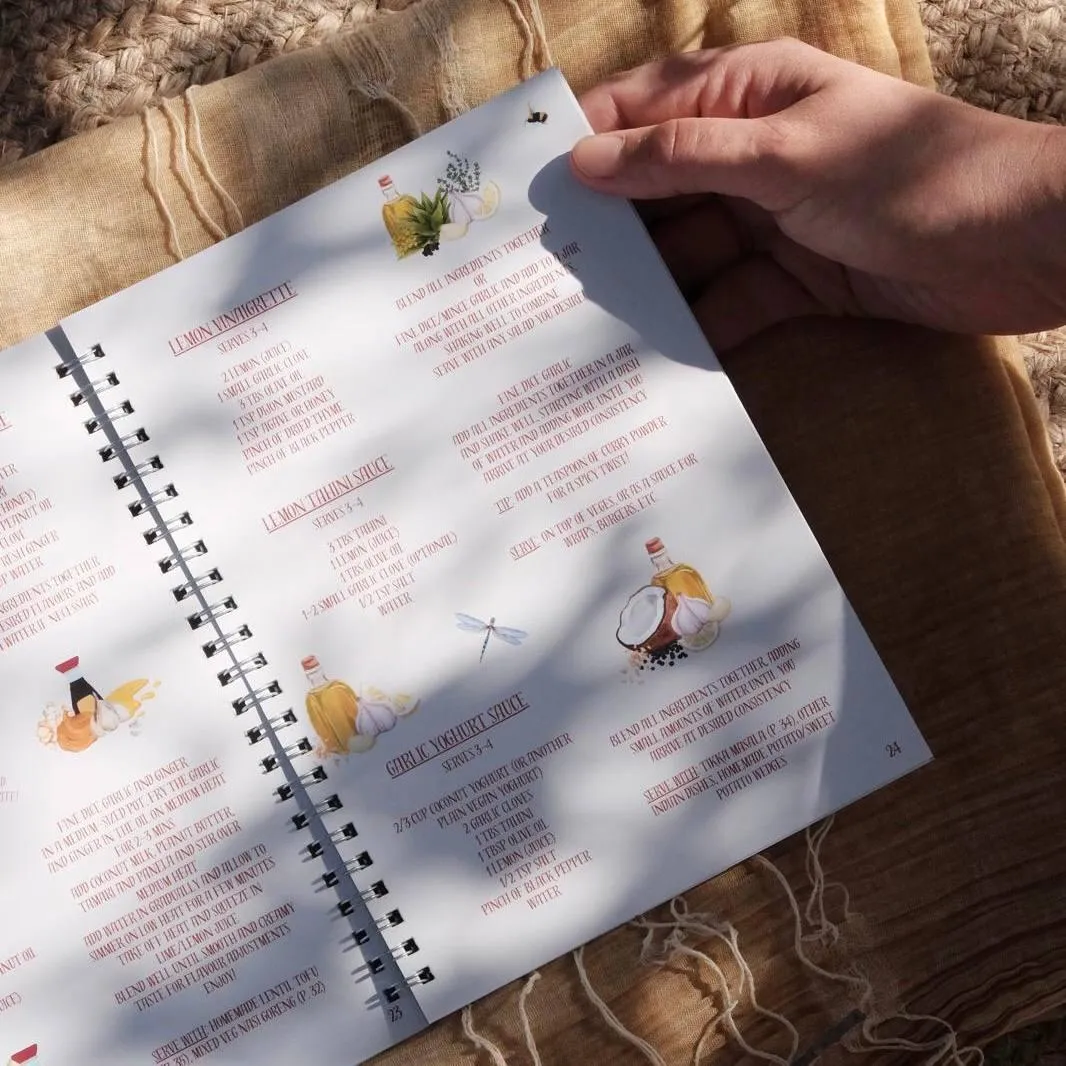 TER
HONEY)
PEANUT OIL
CLOVE
ESH GINGER
OF WATER
INGREDIENTS TOGETHER
ESIRED FLAVOURS AND ADD
WATER IF NECESSARY
FINE DICE GARLIC AND GINGER
IN A MEDIUM-SIZED POT, FRY THE GARLIC
AND GINGER IN THE OIL ON MEDIUM HEAT
FOR 2-3 MINS
ADD COCONUT MILK, PEANUT BUTTER,
TAMARI AND PANELA AND STIR OVER
MEDIUM HEAT
ADD WATER IN GRADUALLY AND ALLOW TO
SIMMER ON LOW HEAT FOR A FEW MINUTES
TAKE OFF HEAT AND SQUEEZE IN
LIME/LEMON JUICE
BLEND WELL UNTIL SMOOTH AND CREAMY
TASTE FOR FLAVOUR ADJUSTMENTS
ENJOY!
SERVE WITH: HOMEMADE LENTIL TOFU
(P. 35), MIXED VEG NASI GORENG (P. 32)
ANUT OIL
UICE)
23
LEMON VINAIGRETTE
SERVES 3-4
2 LEMON (JUICE)
1 SMALL GARLIC CLOVE
3 TBS OLIVE OIL
1 TSP DIJON MUSTARD
1 TSP AGAVE OR HONEY
PINCH OF DRIED THYME
PINCH OF BLACK PEPPER
BLEND ALL INGREDIENTS TOGETHER
OR
FINE DICE/MINCE GARLIC AND ADD TO A JAR
ALONG WITH ALL OTHER INGREDIENTS
SHAKING WELL TO COMBINE
SERVE WITH ANY SALAD YOU DESIRE
LEMON TAHINI SAUCE
SERVES 3-4
3 TBS TAHINI
1 LEMON (JUICE)
1 TBS OLIVE OIL
1-2 SMALL GARLIC CLOVE (OPTIONAL)
1/2 TSP SALT
WATER
FINE DICE GARLIC
ADD ALL INGREDIENTS TOGETHER IN A JAR
AND SHAKE WELL, STARTING WITH A DASH
OF WATER AND ADDING MORE UNTIL YOU
ARRIVE AT YOUR DESIRED CONSISTENCY
TIP: ADD A TEASPOON OF CURRY POWDER
FOR A SPICY TWIST!
SERVE ON TOP OF VEGES, OR AS A SAUCE FOR
WRAPS, BURGERS, ETC
GARLIC YOGHURT SAUCE
SERVES 3-4
2/3 CUP COCONUT YOGHURT (OR ANOTHER
PLAIN VEGAN YOGHURT)
2 GARLIC CLOVES
1 TBS TAHINI
1 TBSP OLIVE OIL
1 LEMON (JUICE)
1/2 TSP SALT
PINCH OF BLACK PEPPER
WATER
BLEND ALL INGREDIENTS TOGETHER, ADDING
SMALL AMOUNTS OF WATER UNTIL YOU
ARRIVE AT DESIRED CONSISTENCY
SERVE WITH: TIKKA MASALA (P. 34), OTHER
INDIAN DISHES, HOMEMADE POTATO/SWEET
POTATO WEDGES
24